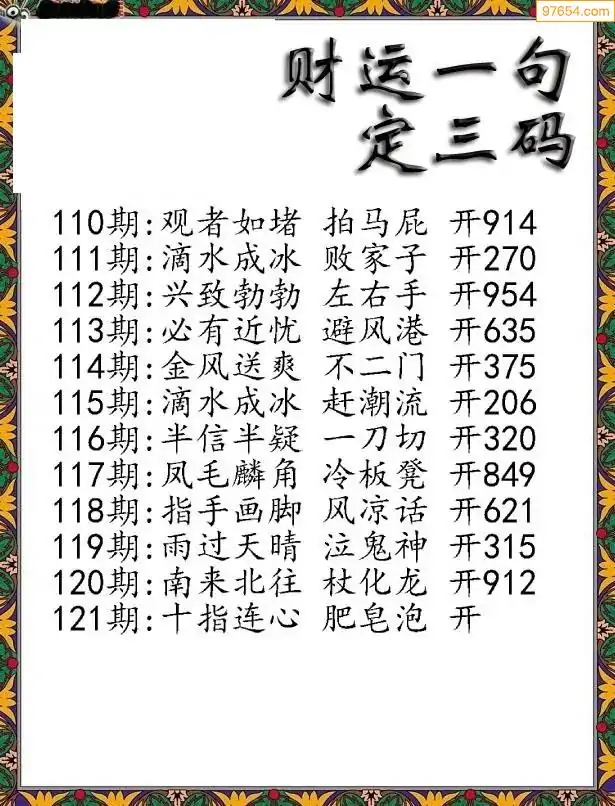 97654.com
财运一句
定三码
110期:观者如堵 拍马屁 开914
111期:滴水成冰 败家子 开270
112期:兴致勃勃 左右手 开954
113期:必有近忧 避风港 开635
114期:金风送爽 不二门 开375
115期:滴水成冰 赶潮流 开206
116期:半信半疑 一刀切 开320
117期:凤毛麟角 冷板凳 开849
118期:指手画脚 风凉话 开621
119期:雨过天晴 泣鬼神 开315
120期:南来北往 杖化龙 开912
121期:十指连心 肥皂泡 开